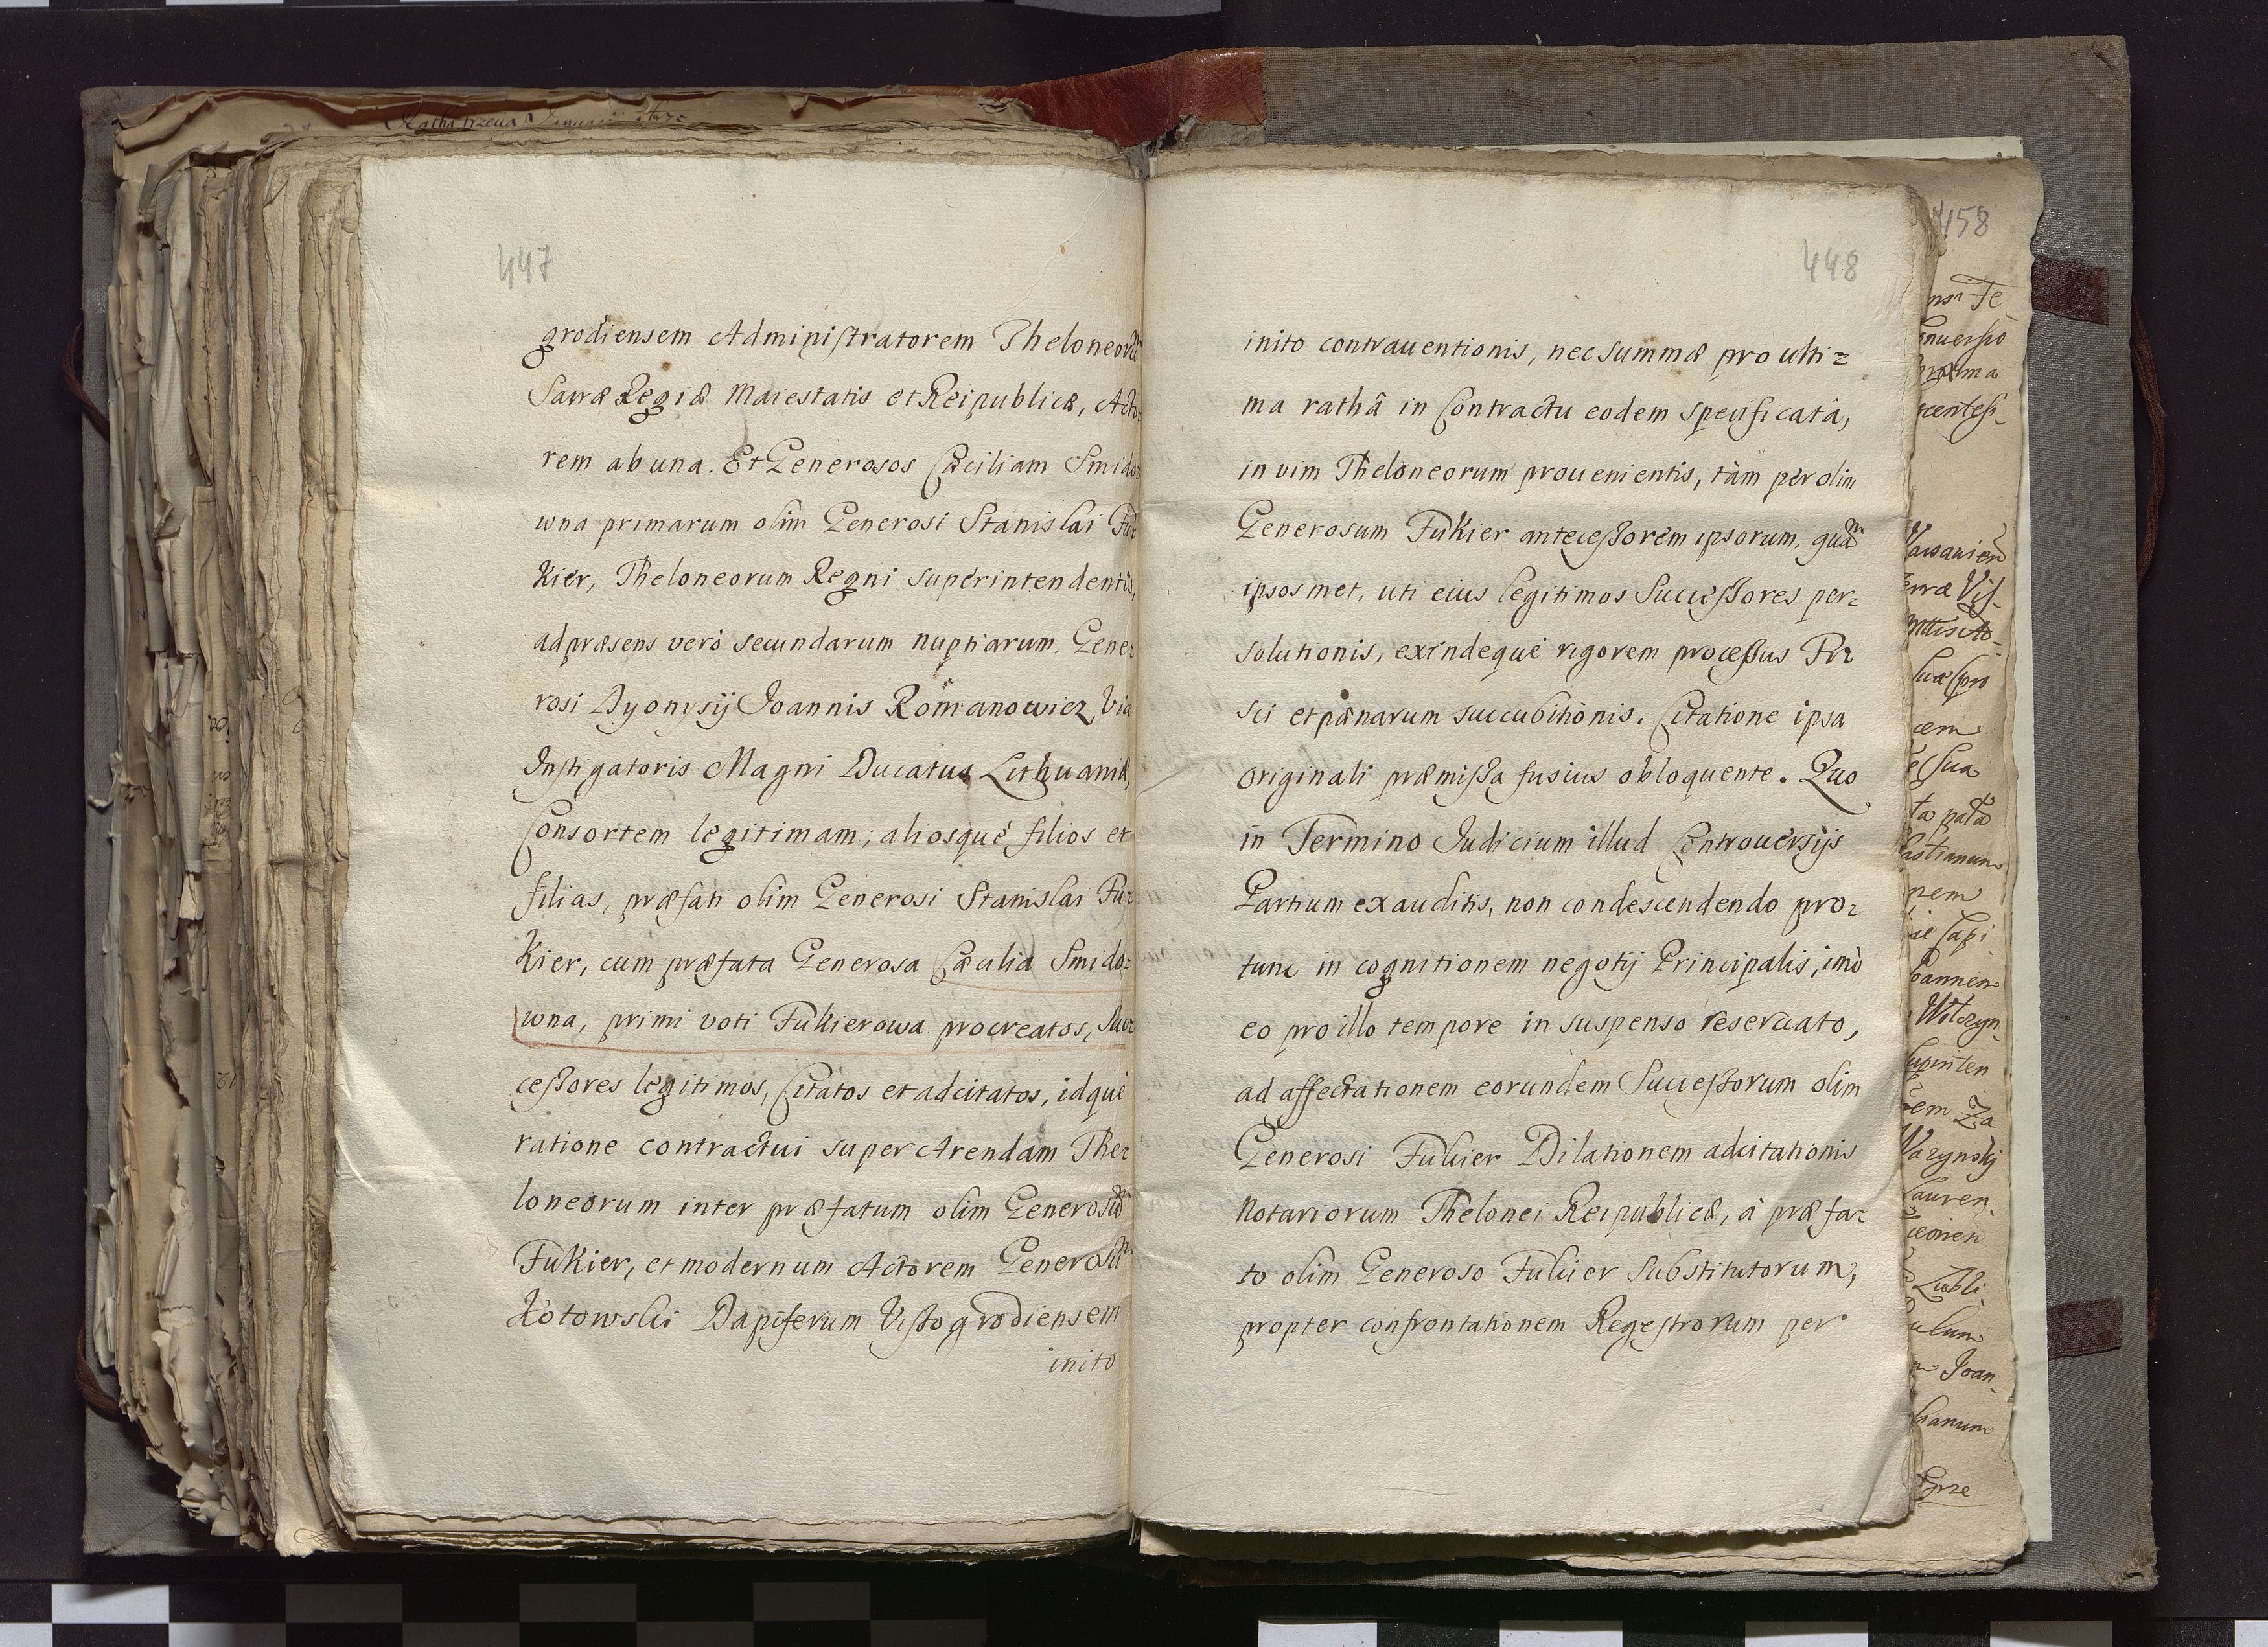 447
grodiensem Administratorem Theloneorũ
Sacræ Regiæ Maiestatis et Reipublicæ, Acto-
rem ab una. Et Generosos Cæciliam Smido-
wna primarum olim Generosi Stanislai Fu-
kier, Theloneorum Regni superintendentis,
ad præsens verò secundarum nuptiarum. Gene-
rosi Dyonysij Joannis Romanowicz, Vice
Instigatoris Magni Ducatus Lithuaniæ,
Consortem legitimam; aliosquè filios et
filias, præfati olim Generosi Stanislai Fu-
kier, cum præfata Generosa Cæcilia Smido-
wna, primi voti Fukierowa procreatos, Suc-
cessores legitimos, Citatos et adcitatos, idquè
ratione contractui super Arendam The-
loneorum inter præfatum olim Generosũ
Fukier, et modernum Actorem Generosũ
Kotowski Dapiferum Vissogrodiensem
inito
448
inito contrauentionis, nec summæ pro ulti-
ma rathâ in Contractu eodem specificatâ,
in vim Theloneorum prouenientis, tàm per olim
Generosum Fukier antecessorem ipsorum, quàm
ipsosmet, uti eius legitimos Successores per-
solutionis, exindequè rigorem processus Fi-
sci et pænarum succubitionis. Citatione ipsa
originali præmissa fusius obloquente. Quo
in Termino Judicium illud Controuersijs
Partium exauditis, non condescendendo pro-
tunc in cognitionem negotij Principalis, imò
eo pro illo tempore in suspenso reseruato,
ad affectationem eorundem Successorum olim
Generosi Fukier Dilationem adcitationis
Notariorum Thelonei Reipublicæ, à præfa-
to olim Generoso Fukier Substitutorum,
propter confrontationem Regestrorum per
458